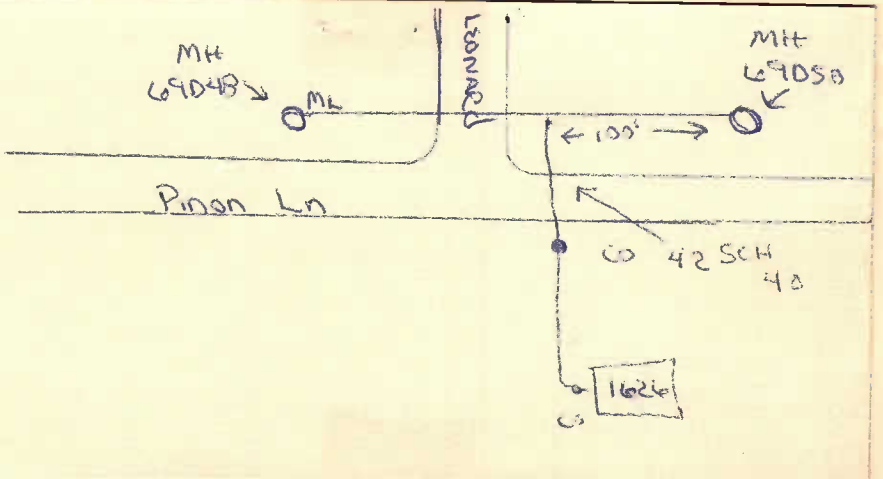 MH
69D4B
ML
LEONARD
MH
69D5B
100'
Pinon Ln
CO
42 SCH
40
1626
CO